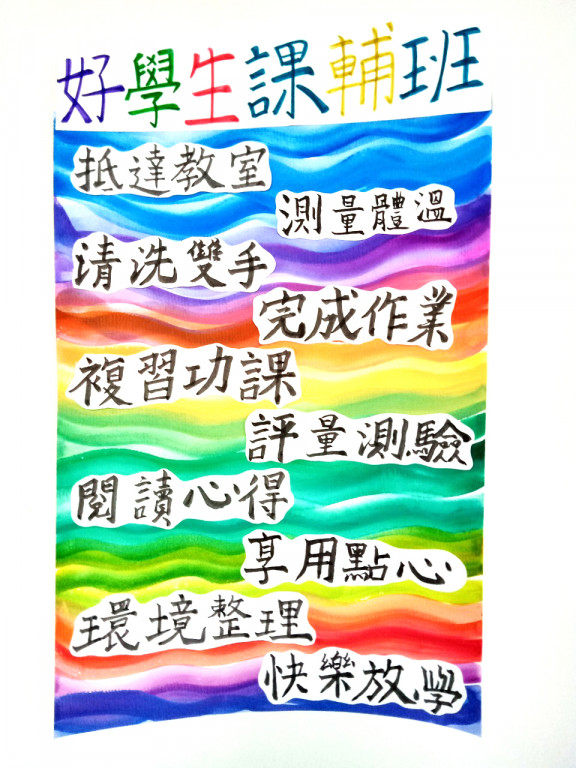 好學生課輔班
抵達教室
測量體溫
清洗雙手
完成作業
複習功課
評量測驗
閱讀心得
享用點心
環境整理
快樂放學